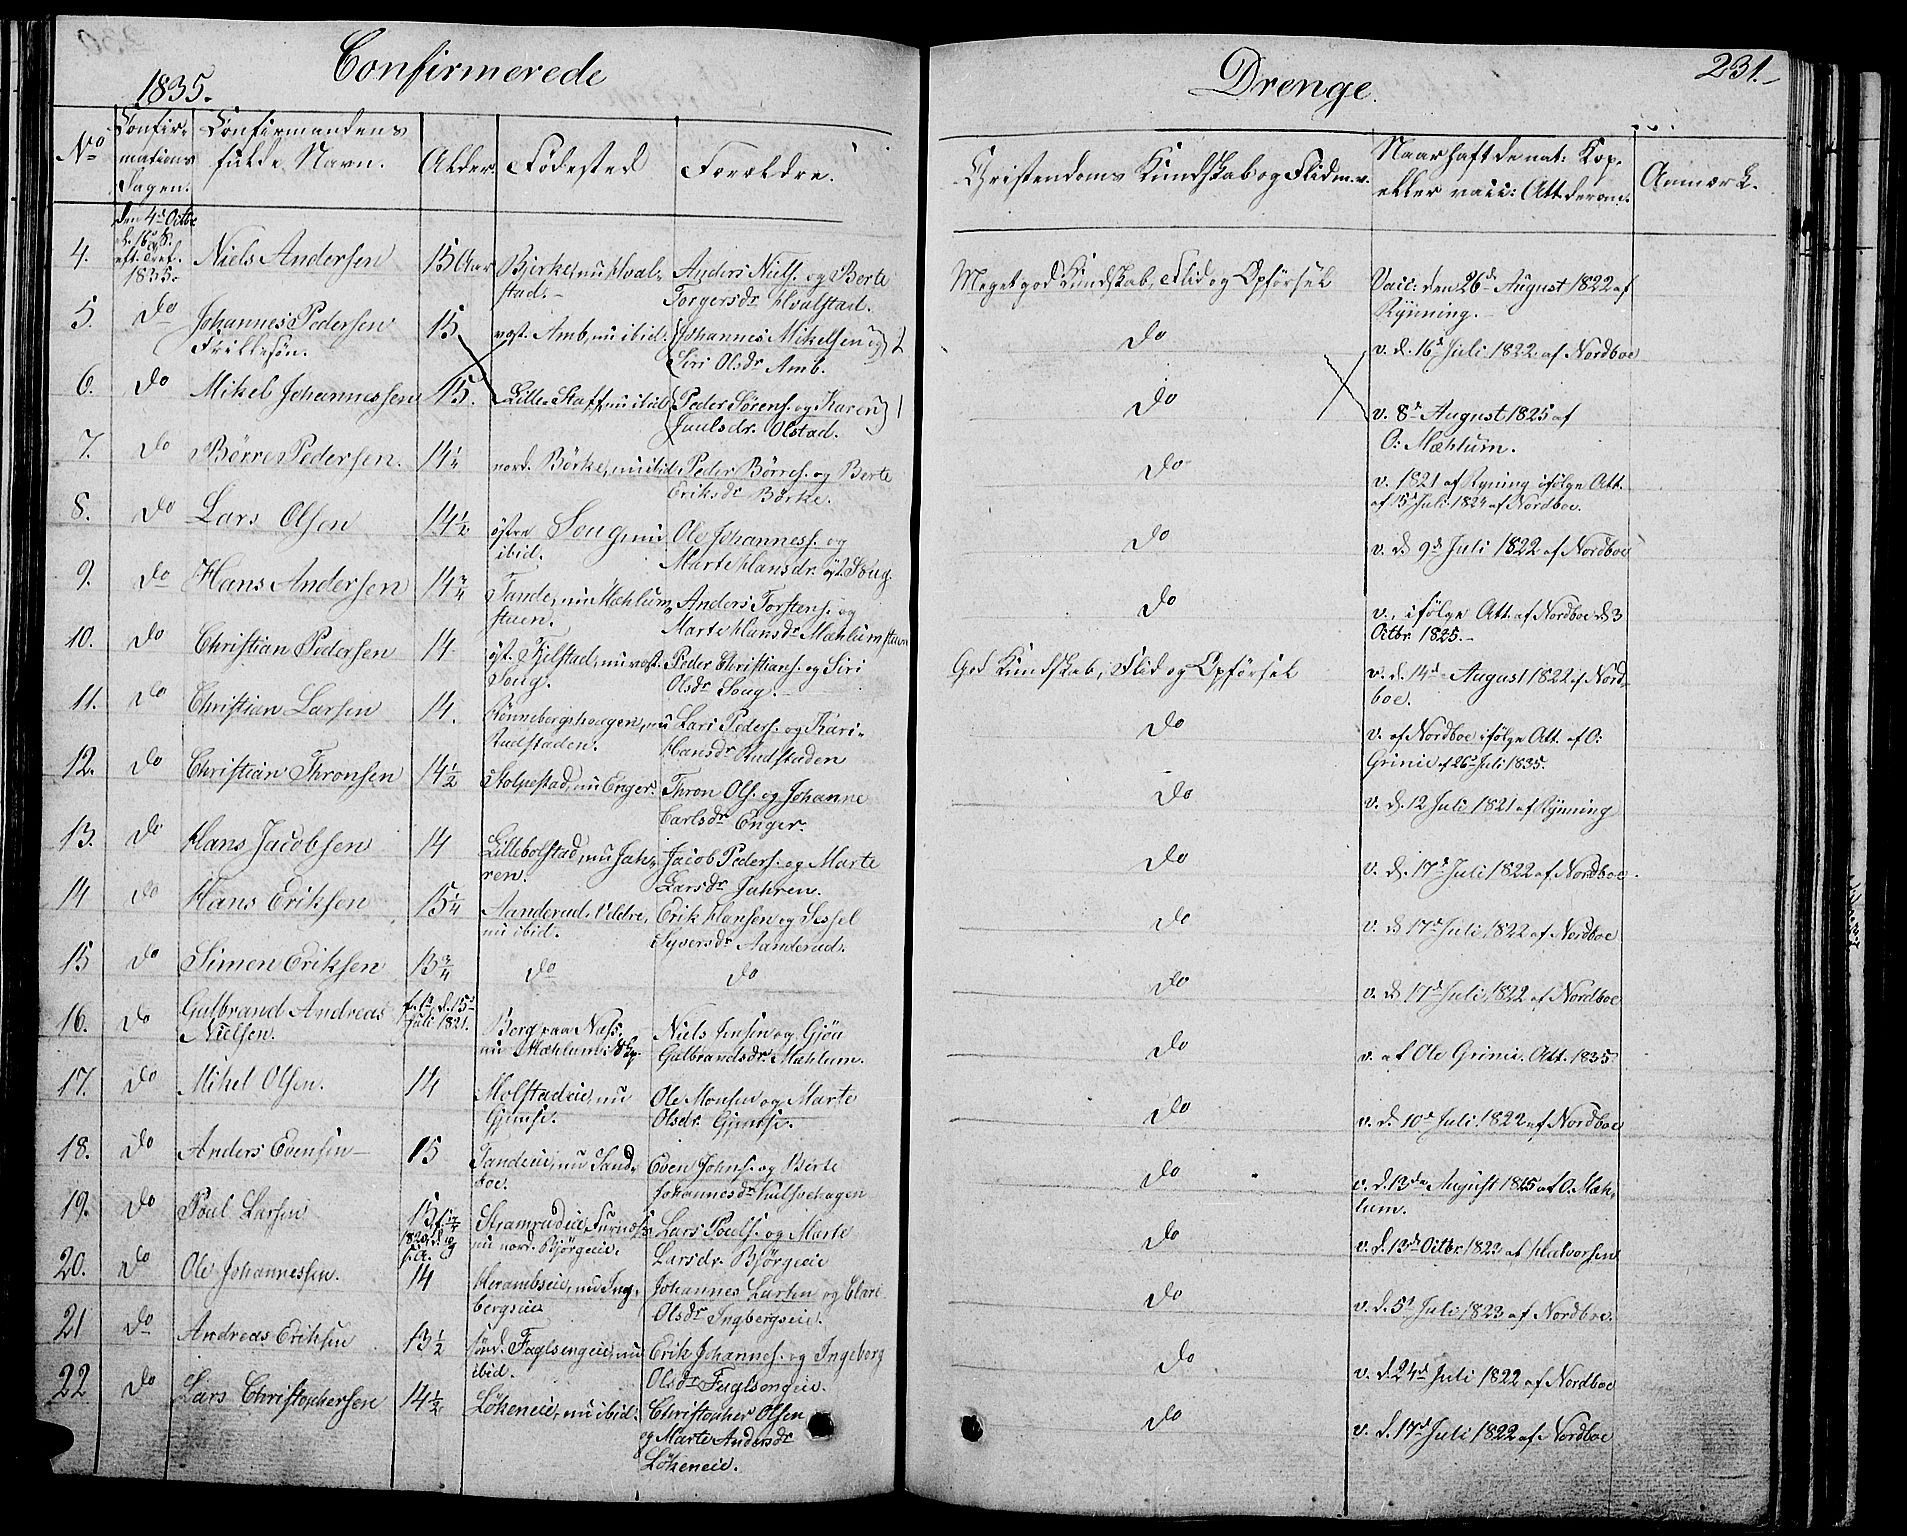 231.
1835.
Confirmerede
Drenge.
No
Confir-
mations
Dagen.
Confirmandens
fulde Navn.
Alder.
Födested
Forældre.
Christendoms Kundskab og Flid m. v.
Naar havt de nat: Kop.
eller vacc: Att. derom.
Anmærk.
4.
den 4de Octbr
d. 16 S.
eft. Tref.
1835.
Niels Andersen
15 Aar
Bjerke, nu Hval-
stad.
Anders Niels. og Berte
Torgersdr. Hvalstad.
Meget god Kundskab, Flid og Opförsel
Vacc: den 26de August 1822 af
Rynning.
5.
do
Johannes Pedersen
Frillesön.
15
vest. Amb, nu ibid.
Johannes Mikelsen og
Siri Olsdr Amb.
2
do
v. d. 16d Juli 1822 af Nordboe
6.
do
Mikel Johannessen
15.
Lille Staff, nu ibid
Peder Sörens. og Karen
Juulsdr. Olstad.
1
do
v. 8de August 1825 af
O: Mæhlum.
7.
do
Börre Pedersen.
14 1/4
nord. Börke, nu ibid
Peder Börres. og Berte
Eriksdr Börke.
do
v. 1821 af Ryning ifölge Att.
af 15d Juli 1824 af Nordboe.
8.
do
Lars Olsen
14 1/2
östre Soug, nu
ibid.
Ole Johanness. og
Marte Hansdr. öst. Soug.
do
v. d. 9d Juli 1822 af Nordboe
9.
do
Hans Andersen
14 3/4
Tande, nu Mæhlum
stuen.
Anders Torstens. og
Marte Hansdr Mæhlumstuen
do
v., ifölge Att. af Nordboe d. 3
Octbr. 1825.
10.
do
Christian Pedersen
14
öst. Kjelstad, nu vest.
Soug.
Peder Christians. og Siri
Olsdr Soug.
God Kundskab, Flid og Opförsel
v. d. 14d August 1822 af Nord-
boe.
11.
do
Christian Larsen
14.
Hönneborgshaugen, nu
Stadstaden.
Lars Peders. og Kari
Hansdr Stadstaden
do
v. af Nordboe ifölge Att. af O:
Grinie af 26d Juli 1835.
12.
do
Christian Thronsen
14 1/2
Stolpestad, nu Enger.
Thron Ols. og Johanne
Carlsdr Enger.
do
v. d. 12 Juli 1821 af Rynning
13.
do
Hans Jacobsen
14
Lillebolstad, nu Jah-
ren.
Jacob Peders. og Marte
Larsdr Jahren.
do
v. d. 17d Juli 1822 af Nordboe.
14
do
Hans Eriksen
15 1/4
Aanderud, Veldre,
nu ibid.
Erik Hansen og Sessel
Syversdr Aanderud.
do
v. d. 17d Juli 1822 af Nordboe
15
do
Simen Eriksen
13 3/4
do
do
do
v. d. 17d Juli 1822 af Nordboe
16.
do
Gulbrand Andreas
Nielsen.
d. 15d
Juli 1821.
Berg paa Næs,
nu Mæhlum
Niels Jensen og Gjöa
Gulbrandsdr. Mæhlum.
do
v. af Ole Grinie. Att. 1835
17.
do
Mikel Olsen.
14
Molstadeie, nu
Gjemse.
Ole Monsen og Marte
Olsdr. Gjemse.
do
v. d. 10d Juli 1822 af Nordboe
18.
do
Anders Evensen
15
Tandeeie, nu Sand-
boe.
Even Johns. og Berte
Johannesdr.
do
v. d. 13de August 1825 af O. Mæh-
lum.
19.
do
Poul Larsen
15
Stramrudeie, Furnæs,
nu nord. Björgeeie.
Lars Pouls. og Marte
Larsdr. Björgeeie
do
v. d. 13d Octbr 1823 af Halvorsen
20.
do
Ole Johannessen.
14
Herambseie, nu Ing-
bergseie
Johannes Larsen og
Olsdr Ingbergseie.
do
v. d. 5d Juli 1823 af Nordboe.
21
do
Andreas Eriksen
13 1/2
sönd. Fuglsengeie, nu
ibid.
Erik Johannes. og Ingeborg
Olsdr Fuglsengeie.
do
v. d. 24d Juli 1822 af Nordboe
22
do
Lars Christophersen
14 1/2
Lökeneie, nu ibid.
Christopher Olsen
og Marte Andersdr
Lökeneie.
do
v. d. 17d Juli 1822 af Nordboe